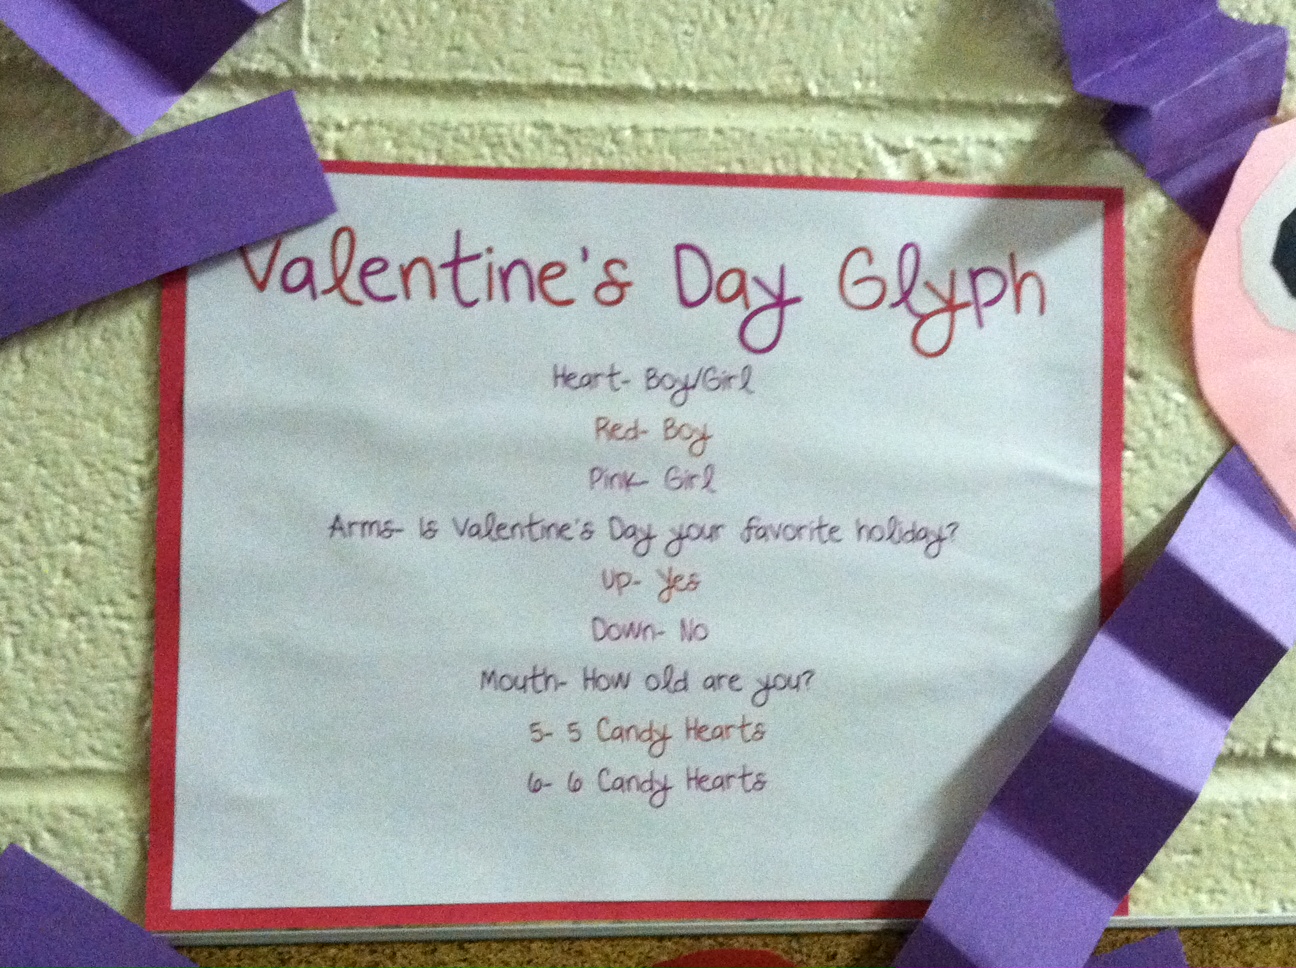 Valentine's Day Glyph
Heart- Boy/Girl
Red- Boy
Pink- Girl
Arms- Is Valentine's Day your favorite holiday?
Up- Yes
Down- No
Mouth- How old are you?
5- 5 Candy Hearts
6- 6 Candy Hearts